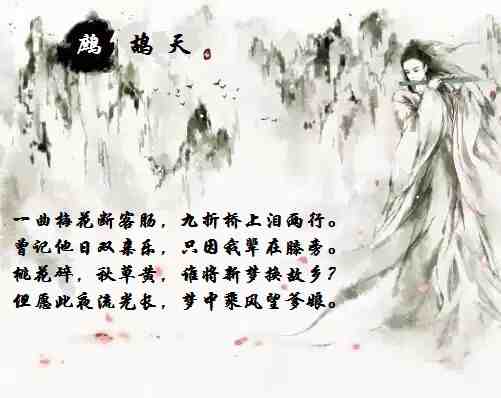 鹧鸪天
一曲梅花断客肠，九折桥上泪两行。
曾记他日双亲乐，只因我辈在膝旁。
桃花碎，秋草黄，谁将新梦换故乡？
但愿此夜流光长，梦中乘风望爹娘。